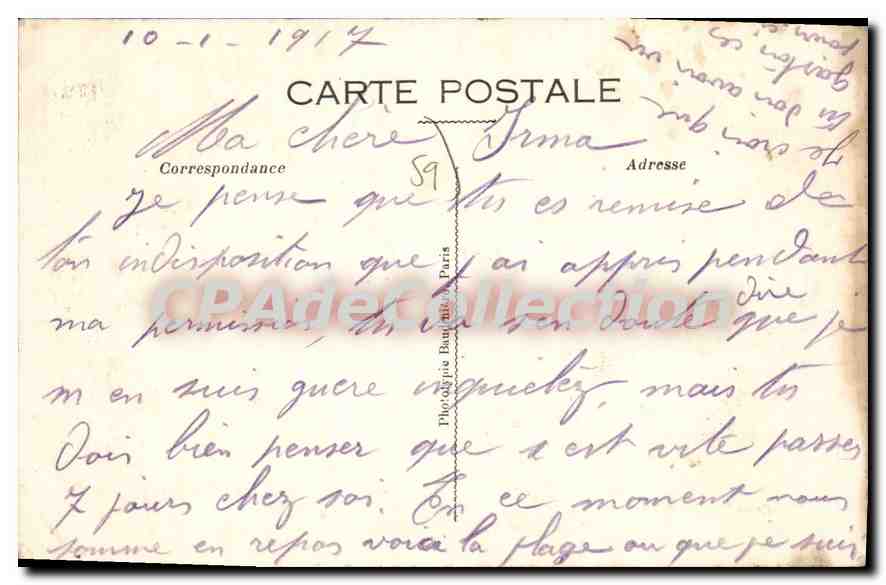 10-1-1917
CARTE POSTALE
Ma chère Irma
Correspondance
Adresse
59
Je pense que tu es remise de
ton indisposition que j'ai appris pendant
ma permission, tu va sen doute dire que je
m en suis guere inquietéz, mais tu
dois bien penser que s est vite passer
7 jours chez soi. En ce moment nous
somme en repos voici la plage ou que je suis
Je croi que
tu doi avoir vu
gaston ces
jours ci
Phototypie Baudinière, Paris
CPAdeCollection